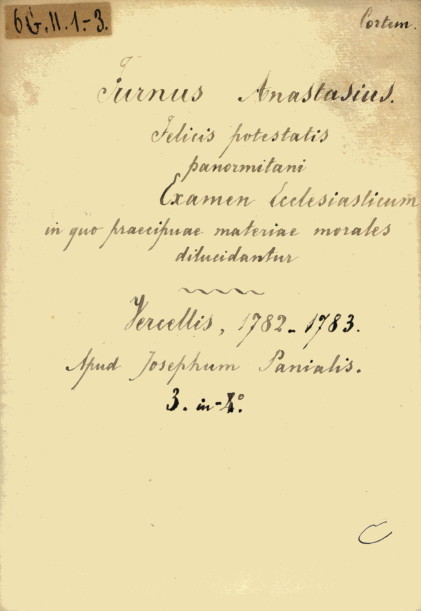 6G.II.1-3.
Cortem.
Furnus Anastasius.
Felicis potestatis
panormitani
Examen Ecclesiasticum
in quo praecipuae materiae morales
dilucidantur
Vercellis, 1782-1783.
Apud Josephum Panialis.
3. in-4°.
C